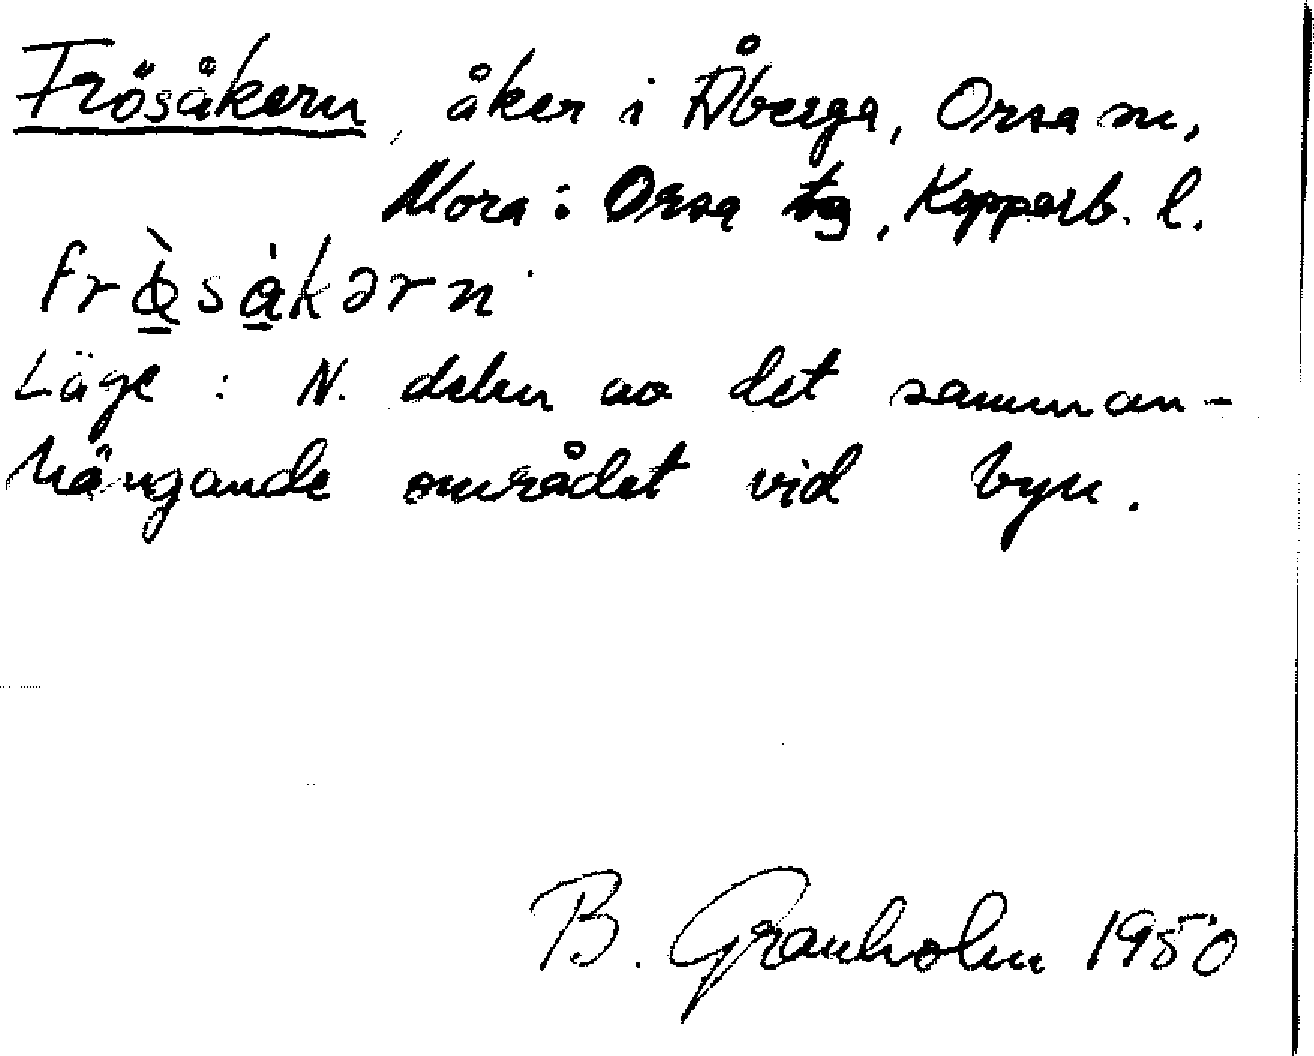 Frösåkern, åker i Åberga, Orsa sn,
Mora: Orsa tg, Kopparb. l.
frœ̀sàkərn
Läge: N. delen av det samman-
hängande området vid byn.
B. Granholm 1950